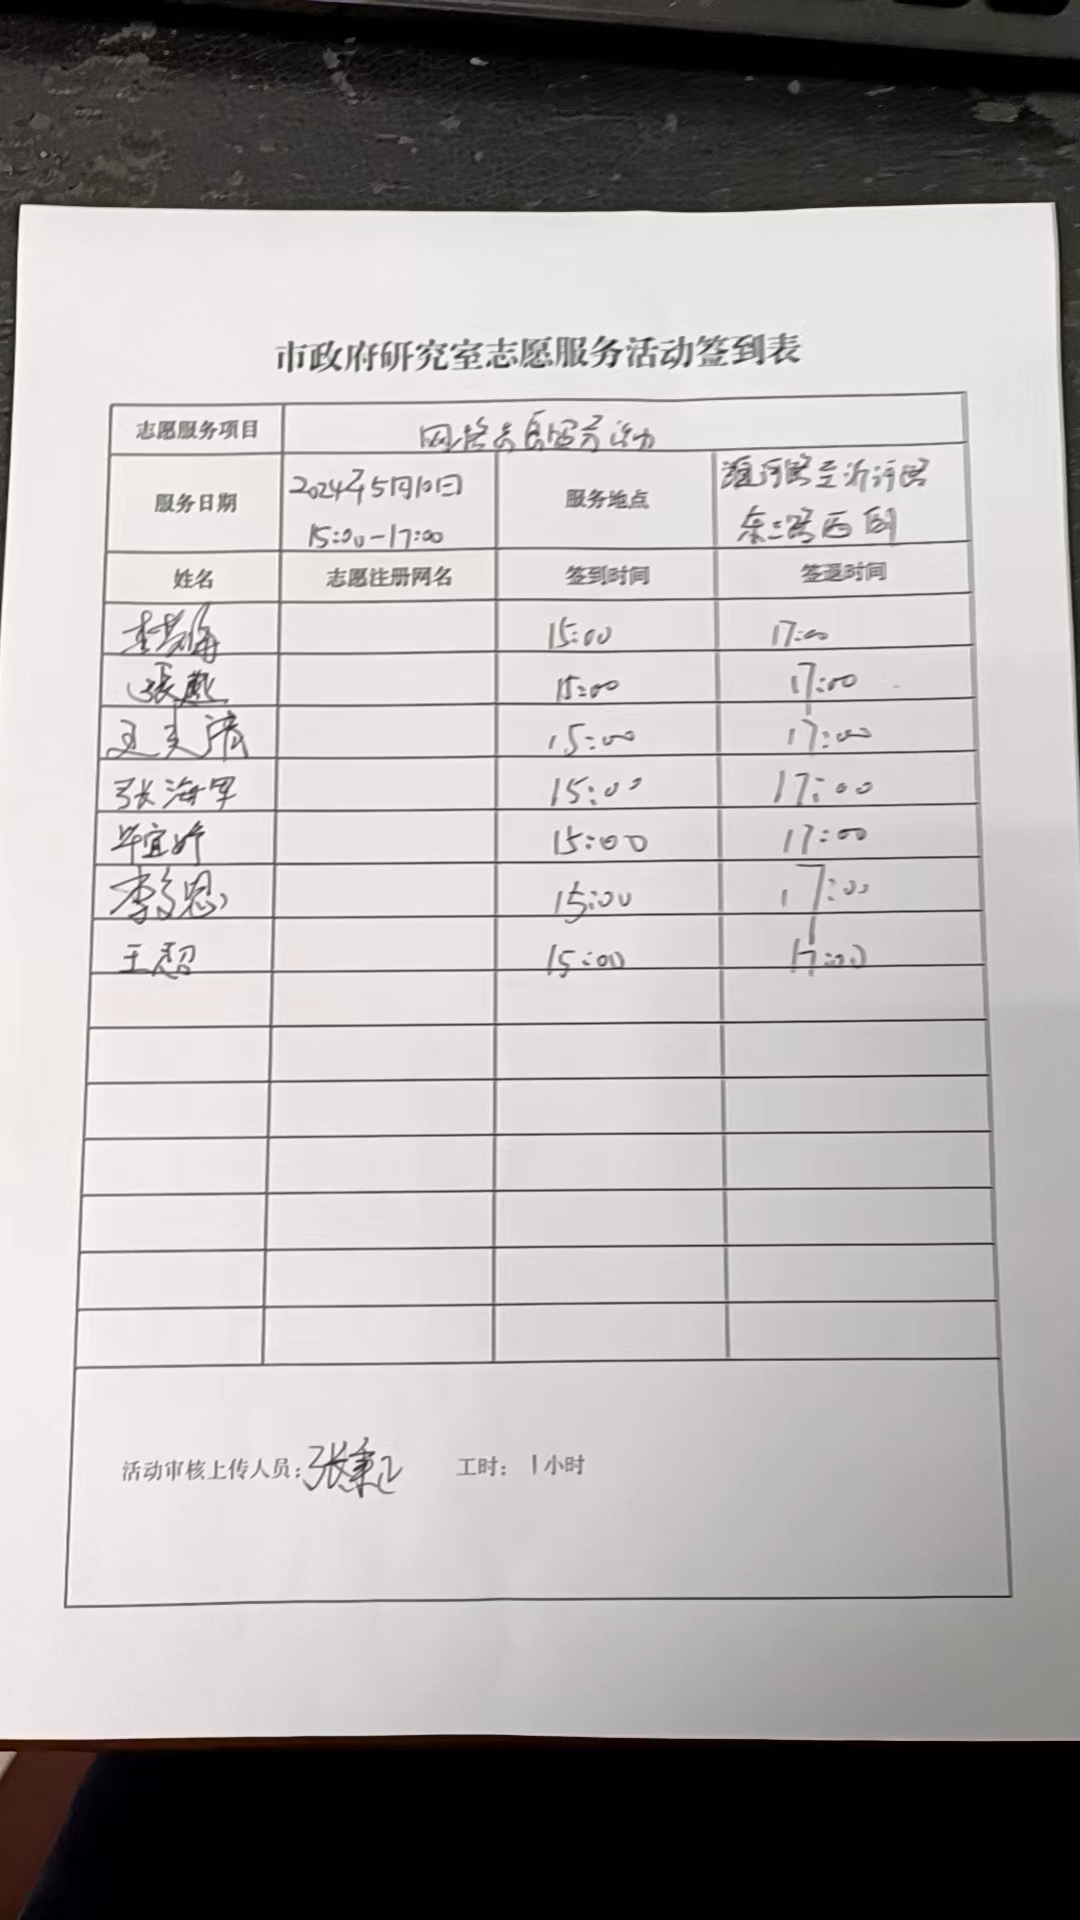 市政府研究室志愿服务活动签到表
志愿服务项目 网格志愿服务活动
服务日期 2024年5月10日 15:00-17:00 服务地点 至沂河路 东二路西侧
姓名 志愿注册网名 签到时间 签退时间
15:00 17:00
张燕 15:00 17:00
15:00 17:00
张海军 15:00 17:00
毕宜婷 15:00 17:00
李文恩 15:00 17:00
王超 15:00 17:00
活动审核上传人员: 张 工时: 1小时